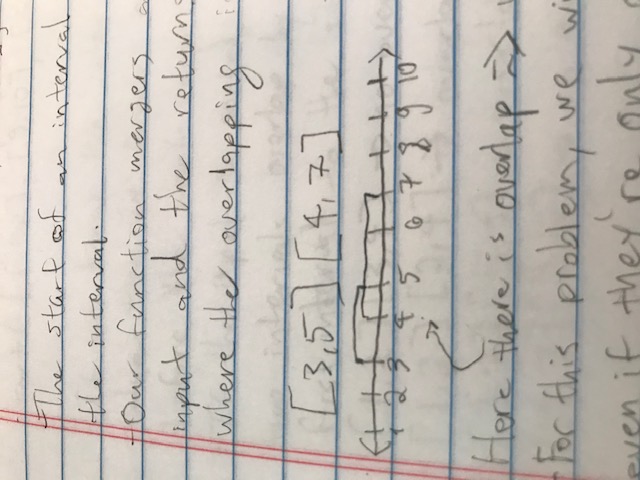 -The start of an interval
the interval.
-Our function mergers
input and the returns
where the overlapping
[3,5] [4,7]
1 2 3 4 5 6 7 8 9 10
Here there is overlap ⇒
-For this problem, we
even if they're only